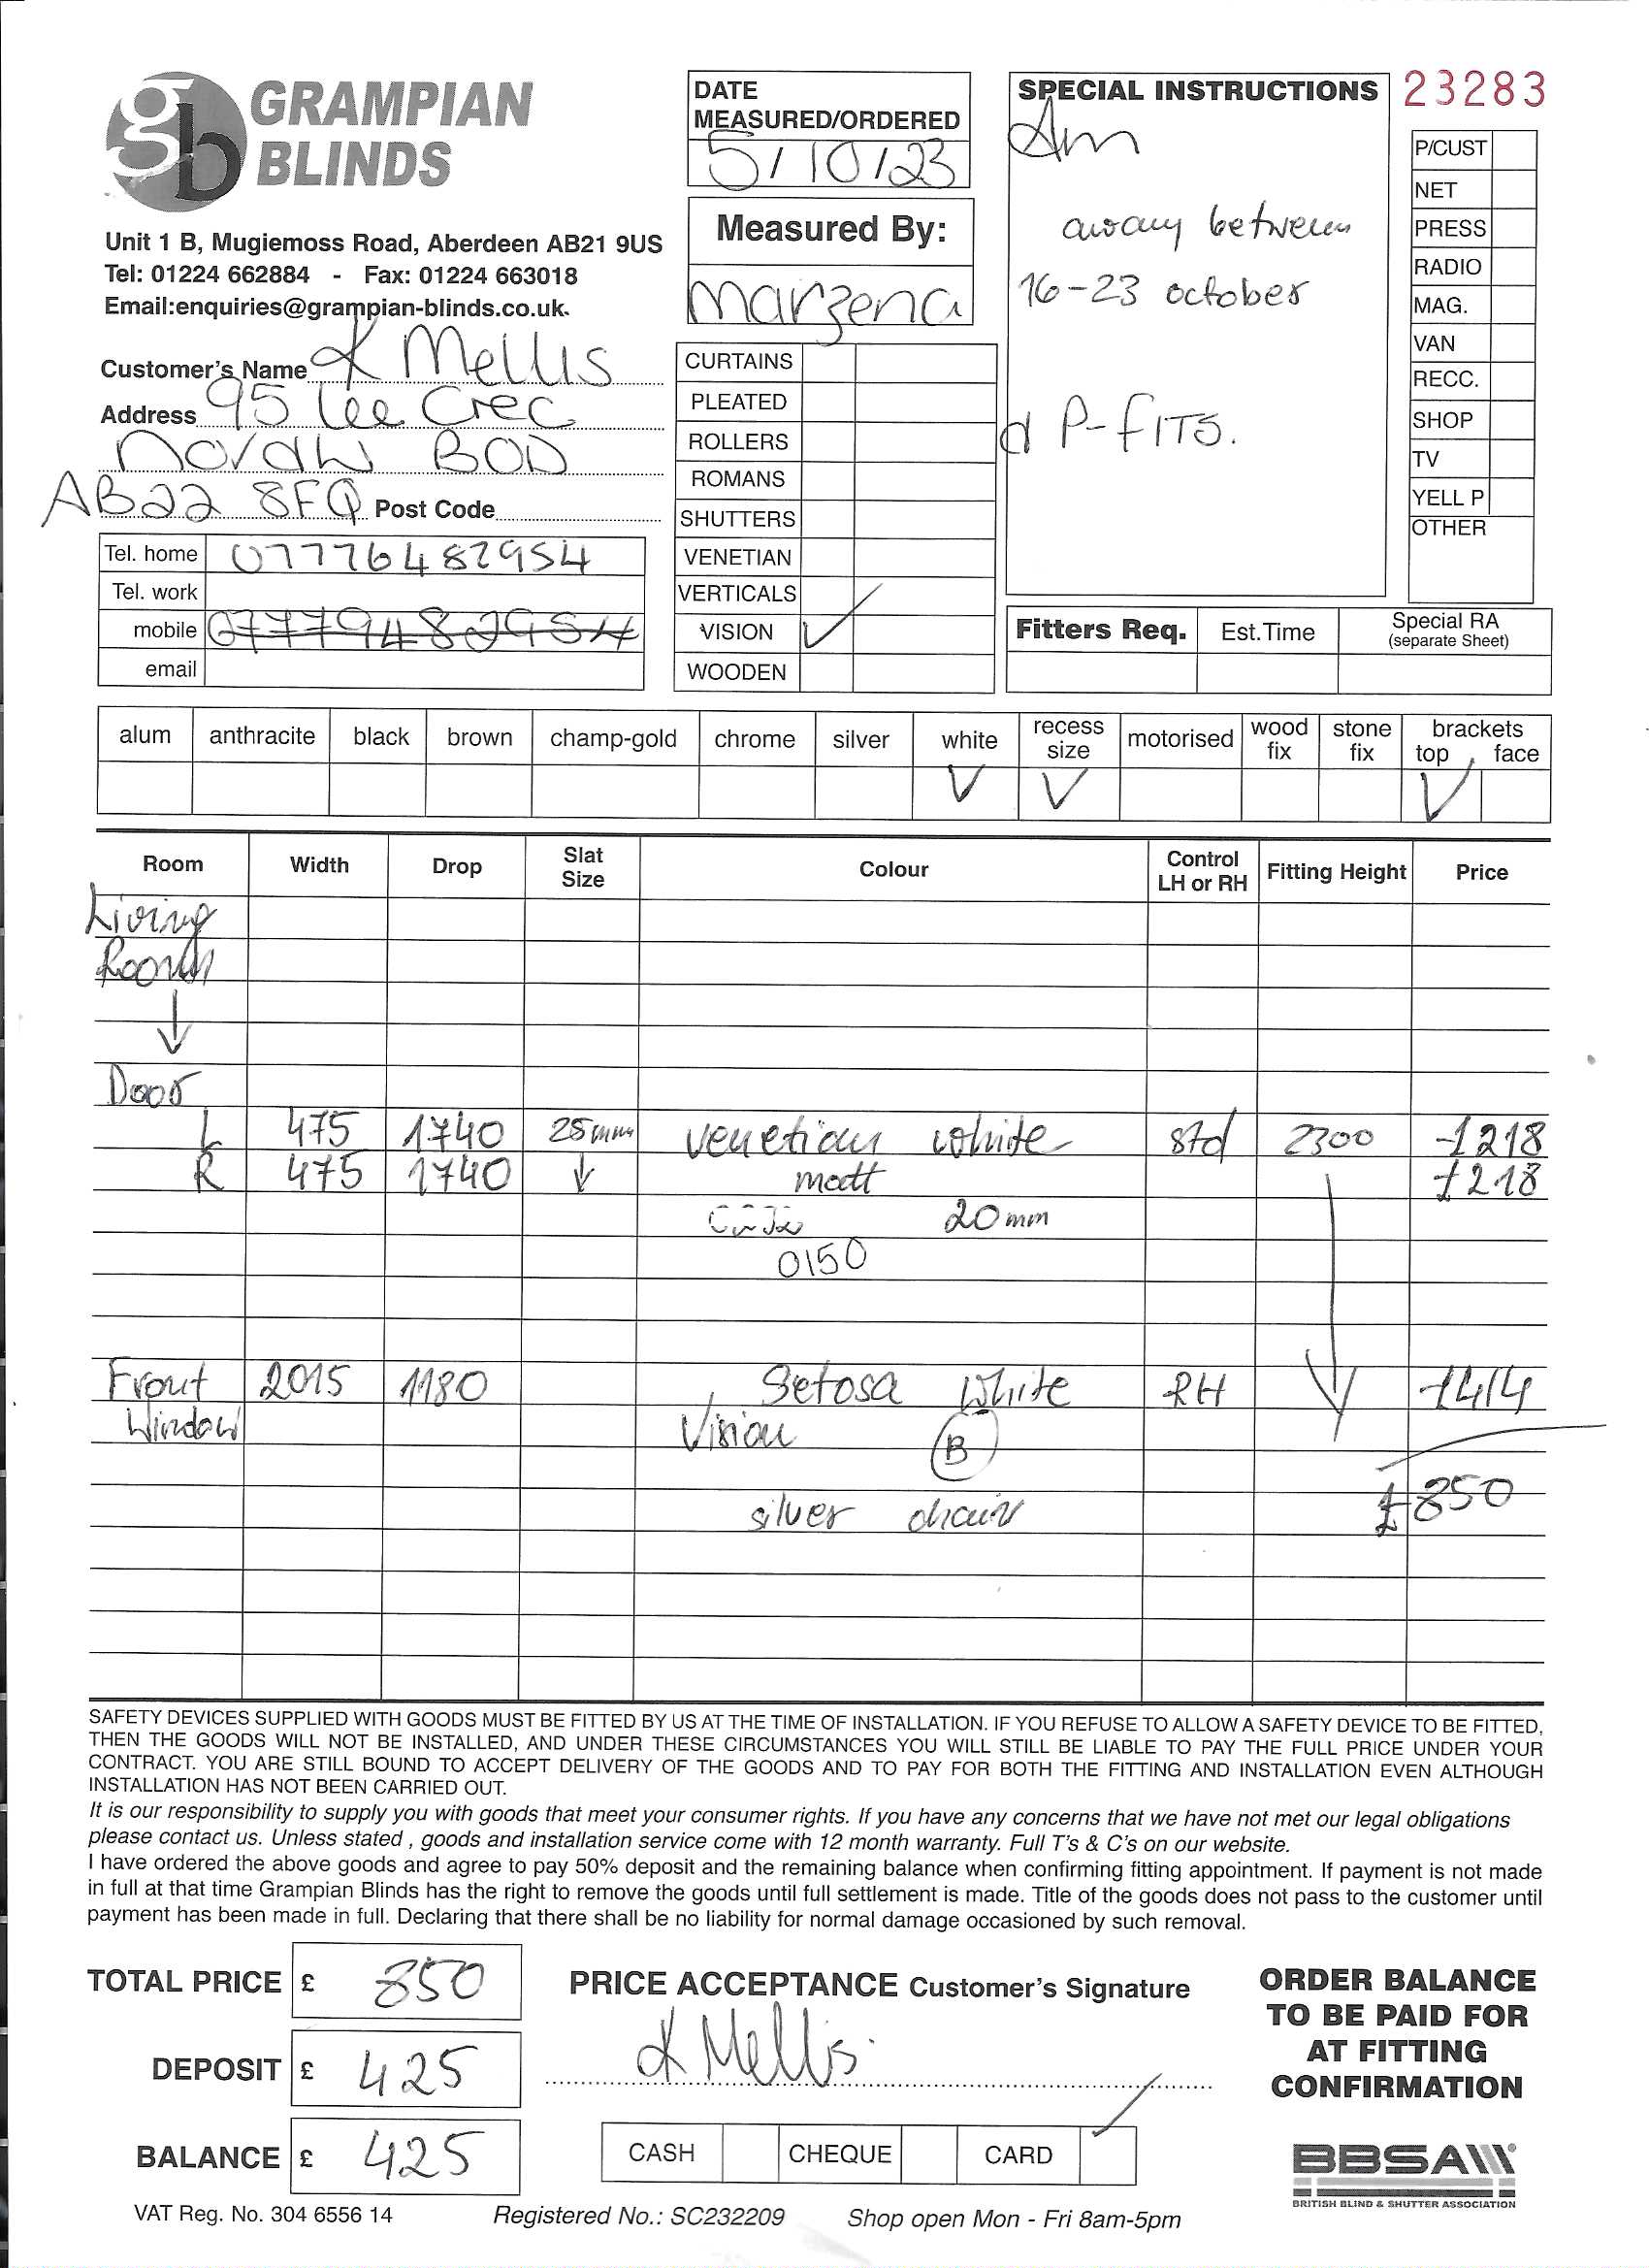 GRAMPIAN
BLINDS
Unit 1 B, Mugiemoss Road, Aberdeen AB21 9US
Tel: 01224 662884 - Fax: 01224 663018
Email:enquiries@grampian-blinds.co.uk.
Customer's Name K Mellis
Address 95 Lee Crec
AB22 8FQ Post Code
Tel. home 07776482954
Tel. work
mobile 07779482954
email
DATE
MEASURED/ORDERED
5/10/23
Measured By:
Marzena
CURTAINS
PLEATED
ROLLERS
ROMANS
SHUTTERS
VENETIAN
VERTICALS
VISION ✓
WOODEN
SPECIAL INSTRUCTIONS
Am
away between
16-23 october
P-FITS.
23283
P/CUST
NET
PRESS
RADIO
MAG.
VAN
RECC.
SHOP
TV
YELL P
OTHER
Fitters Req. Est.Time Special RA
(separate Sheet)
alum anthracite black brown champ-gold chrome silver white recess size motorised wood fix stone fix brackets top face
✓ ✓ ✓
Room Width Drop Slat Size Colour Control LH or RH Fitting Height Price
Living
Room
↓
Door
L 475 1740 25mm venetian white std 2300 £218
R 475 1740 ↓ matt £218
20mm
0150
Front 2015 1180 Setosa White RH £414
Window Vision B
£850
silver chain
SAFETY DEVICES SUPPLIED WITH GOODS MUST BE FITTED BY US AT THE TIME OF INSTALLATION. IF YOU REFUSE TO ALLOW A SAFETY DEVICE TO BE FITTED,
THEN THE GOODS WILL NOT BE INSTALLED, AND UNDER THESE CIRCUMSTANCES YOU WILL STILL BE LIABLE TO PAY THE FULL PRICE UNDER YOUR
CONTRACT. YOU ARE STILL BOUND TO ACCEPT DELIVERY OF THE GOODS AND TO PAY FOR BOTH THE FITTING AND INSTALLATION EVEN ALTHOUGH
INSTALLATION HAS NOT BEEN CARRIED OUT.
It is our responsibility to supply you with goods that meet your consumer rights. If you have any concerns that we have not met our legal obligations
please contact us. Unless stated , goods and installation service come with 12 month warranty. Full T's & C's on our website.
I have ordered the above goods and agree to pay 50% deposit and the remaining balance when confirming fitting appointment. If payment is not made
in full at that time Grampian Blinds has the right to remove the goods until full settlement is made. Title of the goods does not pass to the customer until
payment has been made in full. Declaring that there shall be no liability for normal damage occasioned by such removal.
TOTAL PRICE £ 850
DEPOSIT £ 425
BALANCE £ 425
PRICE ACCEPTANCE Customer's Signature
K Mellis
CASH CHEQUE CARD ✓
ORDER BALANCE
TO BE PAID FOR
AT FITTING
CONFIRMATION
BBSA
BRITISH BLIND & SHUTTER ASSOCIATION
VAT Reg. No. 304 6556 14 Registered No.: SC232209 Shop open Mon - Fri 8am-5pm